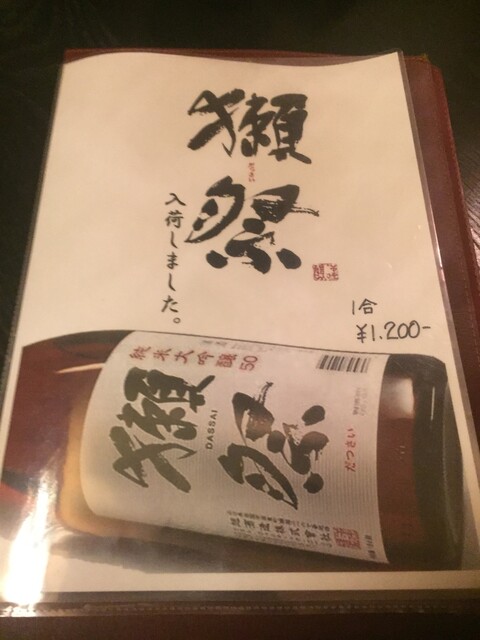 獺祭
だっさい
入荷しました。
1合
¥1.200-
純米大吟醸50
獺祭
DASSAI
だっさい
旭酒造株式會社